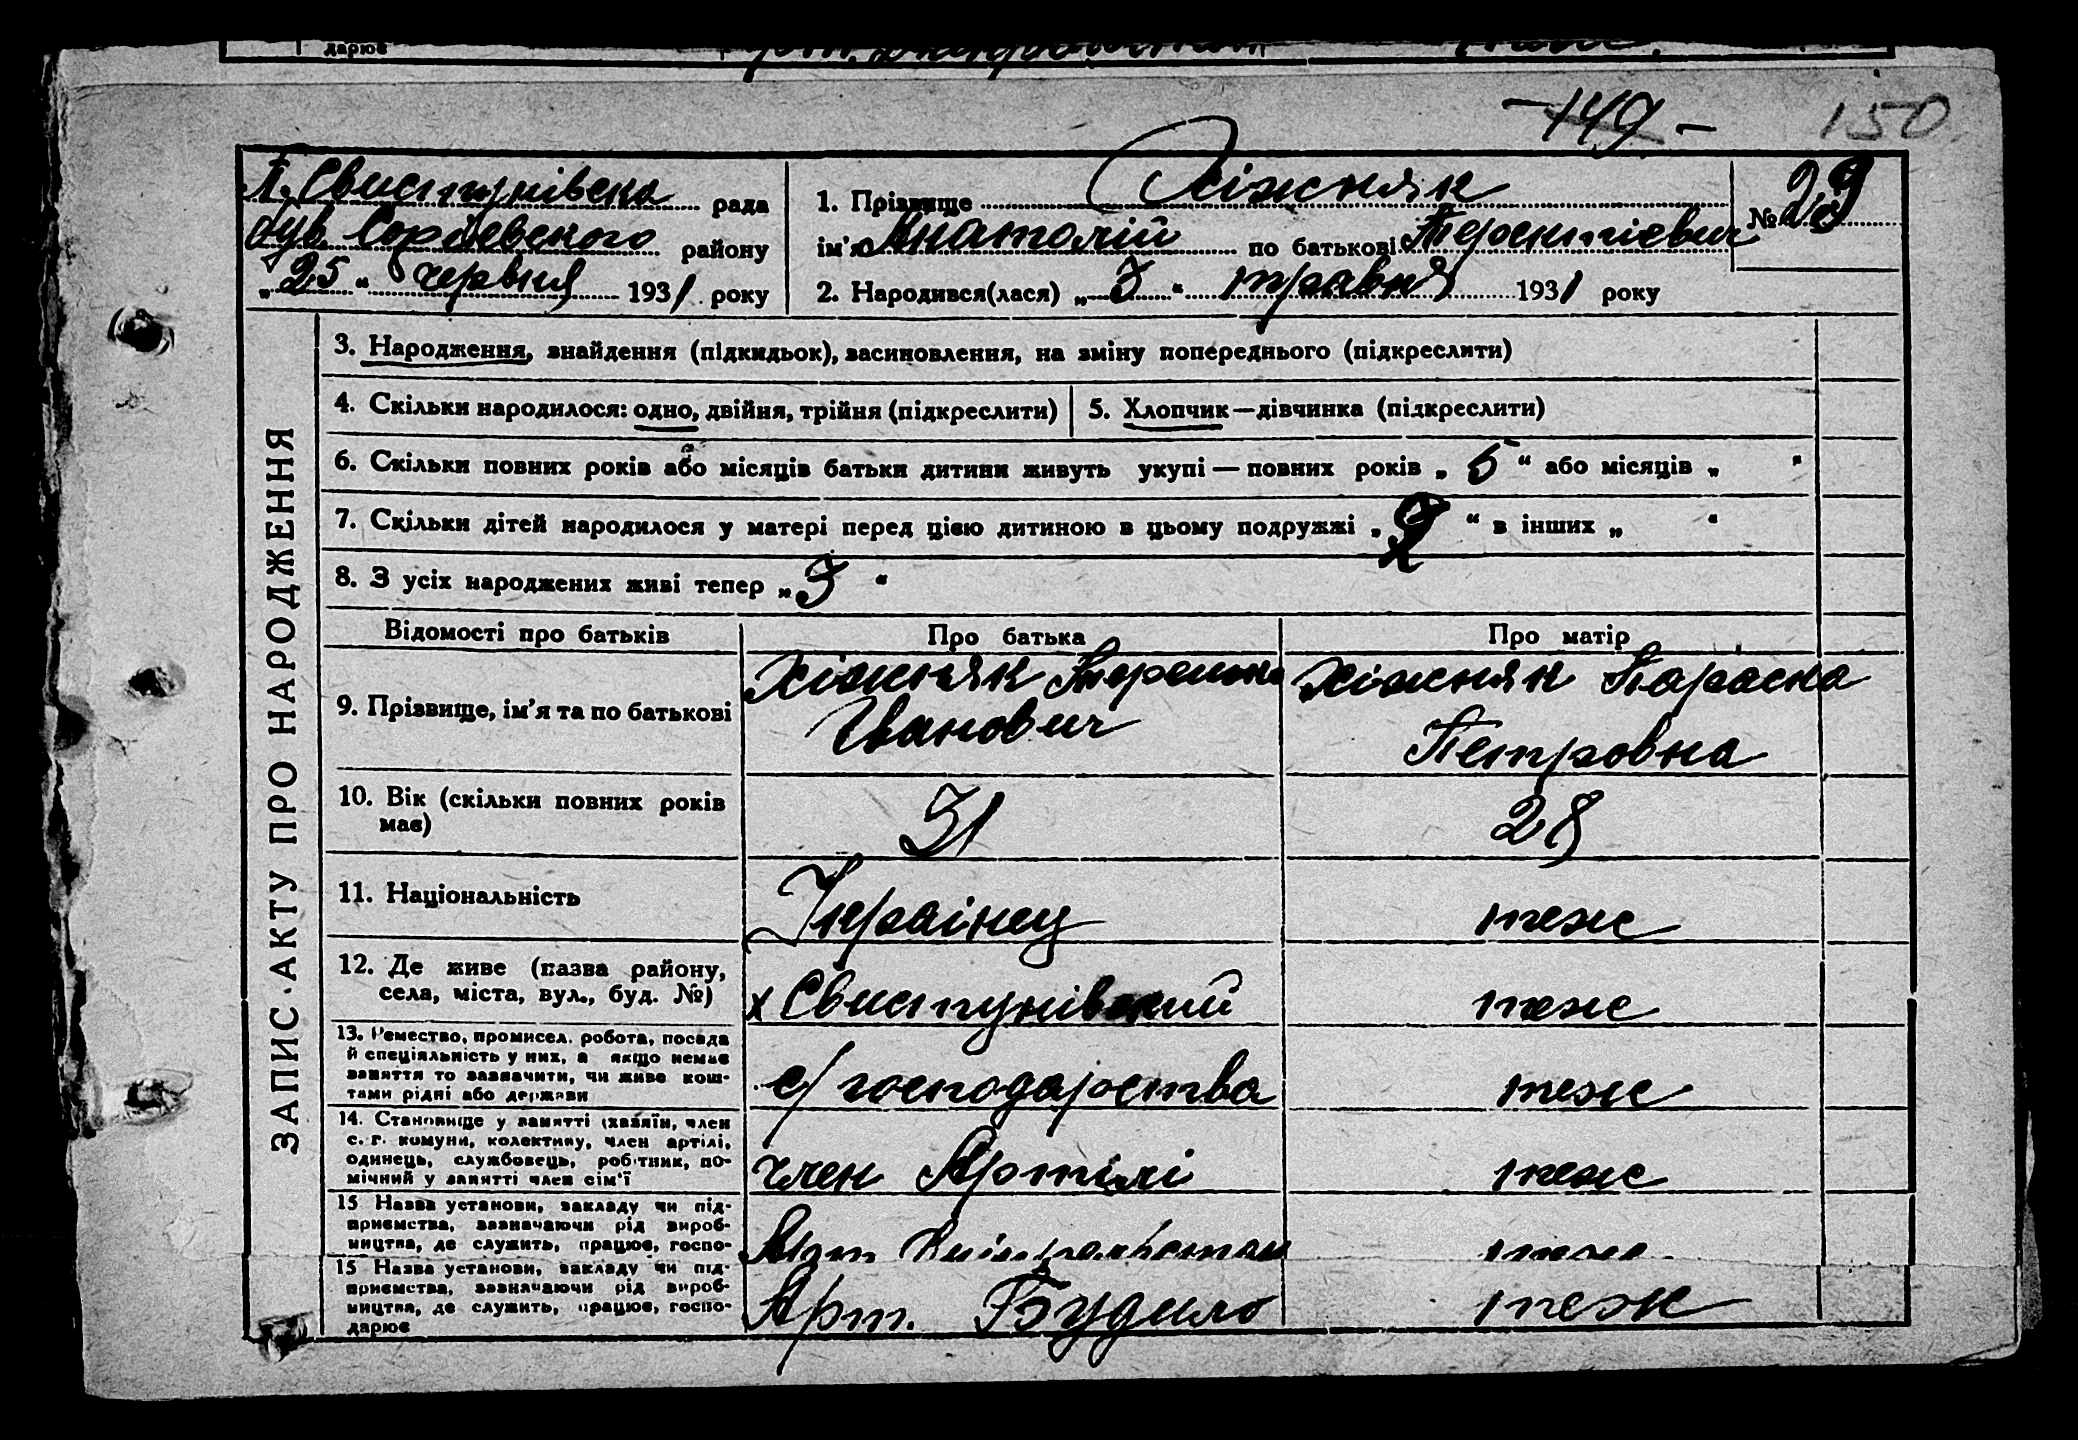 дарює
149 –
150
Свистунівська рада
району
„25“ червня 1931 року
1. Прізвище Хіжняк
ім'я Анатолій по батькові Терентієвич
№ 29
2. Народився(лася) „3“ травня 1931 року
ЗАПИС АКТУ ПРО НАРОДЖЕННЯ
3. Народження, знайдення (підкидьок), засиновлення, на зміну попереднього (підкреслити)
4. Скільки народилося: одно, двійня, трійня (підкреслити)
5. Хлопчик—дівчинка (підкреслити)
6. Скільки повних років або місяців батьки дитини живуть укупі — повних років „5“ або місяців „ “
7. Скільки дітей народилося у матері перед цією дитиною в цьому подружжі „2“ в інших „ “
8. З усіх народжених живі тепер „3“
Відомості про батьків
Про батька
Про матір
9. Прізвище, ім'я та по батькові
Хіжняк
Іванович
Хіжняк Параска
Петровна
10. Вік (скільки повних років
має)
31
28
11. Національність
Українец
теж
12. Де живе (назва району,
села, міста, вул., буд. №)
х Свистунівский
теж
13. Ремество, промисел, робота, посада
й спеціяльність у них, а якщо немає
заняття то зазначити, чи живе кош-
тами рідні або держави
с/господарства
теж
14. Становище у занятті (хазяїн, член
с. г. комуни, колективу, член артілі,
одинець, службовець, робітник, по-
мічний у занятті член сім'ї
член Артілі
теж
15 Назва установи, закладу чи під-
приємства, зазначаючи рід вироб-
ництва, де служить, працює, госпо-
Арт.
теж
15 Назва установи, закладу чи під-
приємства, зазначаючи рід вироб-
ництва, де служить, працює, госпо-
дарює
Арт. Будило
теж